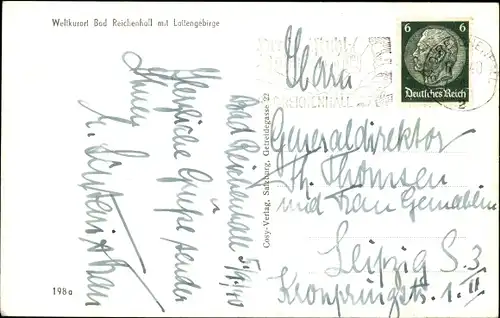 Weltkurort Bad Reichenhall mit Lattengebirge
Bad Reichenhall
Herzliche Grüße sendet
Ihnen
198a
Cosy-Verlag, Salzburg, Getreidegasse 22
6
6
Deutsches Reich
REICHENHALL
40
2
Generaldirektor
Th. Thomsen
und Frau Gemahlin
Leipzig S. 3
Kronprinzstr. 1. II